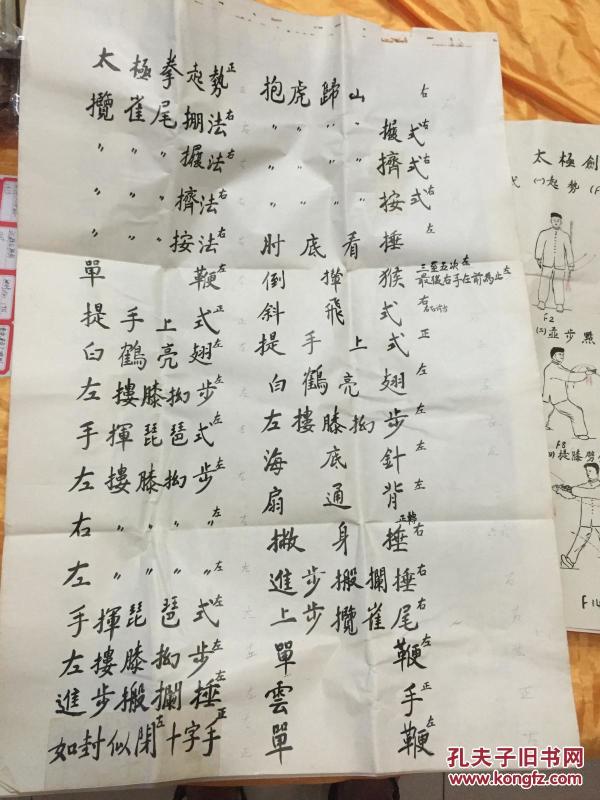 太極拳起勢正
攬雀尾掤法右
〃〃〃握法右
〃〃〃擠法右
〃〃〃按法右
單鞭左
提手上式正
白鶴亮翅左
左摟膝拗步左
手揮琵琶式左
左摟膝拗步左
右〃〃〃〃左
左〃〃〃〃左
手揮琵琶式左
左摟膝拗步左
進步搬攔捶左
如封似閉左十字手正
抱虎歸山右
〃〃〃〃握式右
〃〃〃〃擠式右
〃〃〃〃按式右
肘底看捶左
倒攆猴三至五次左最後右手在前為止左
斜飛式右
提手上式正
白鶴亮翅左
左摟膝拗步左
海底針左
扇通背左
撇身捶正轉右
進步搬攔捶右
上步攬雀尾右
單鞭左
雲手正
單鞭左
太極劍
㈠起勢
F2
㈡並步點
F8
提膝劈
F14
孔夫子旧书网
www.kongfz.com